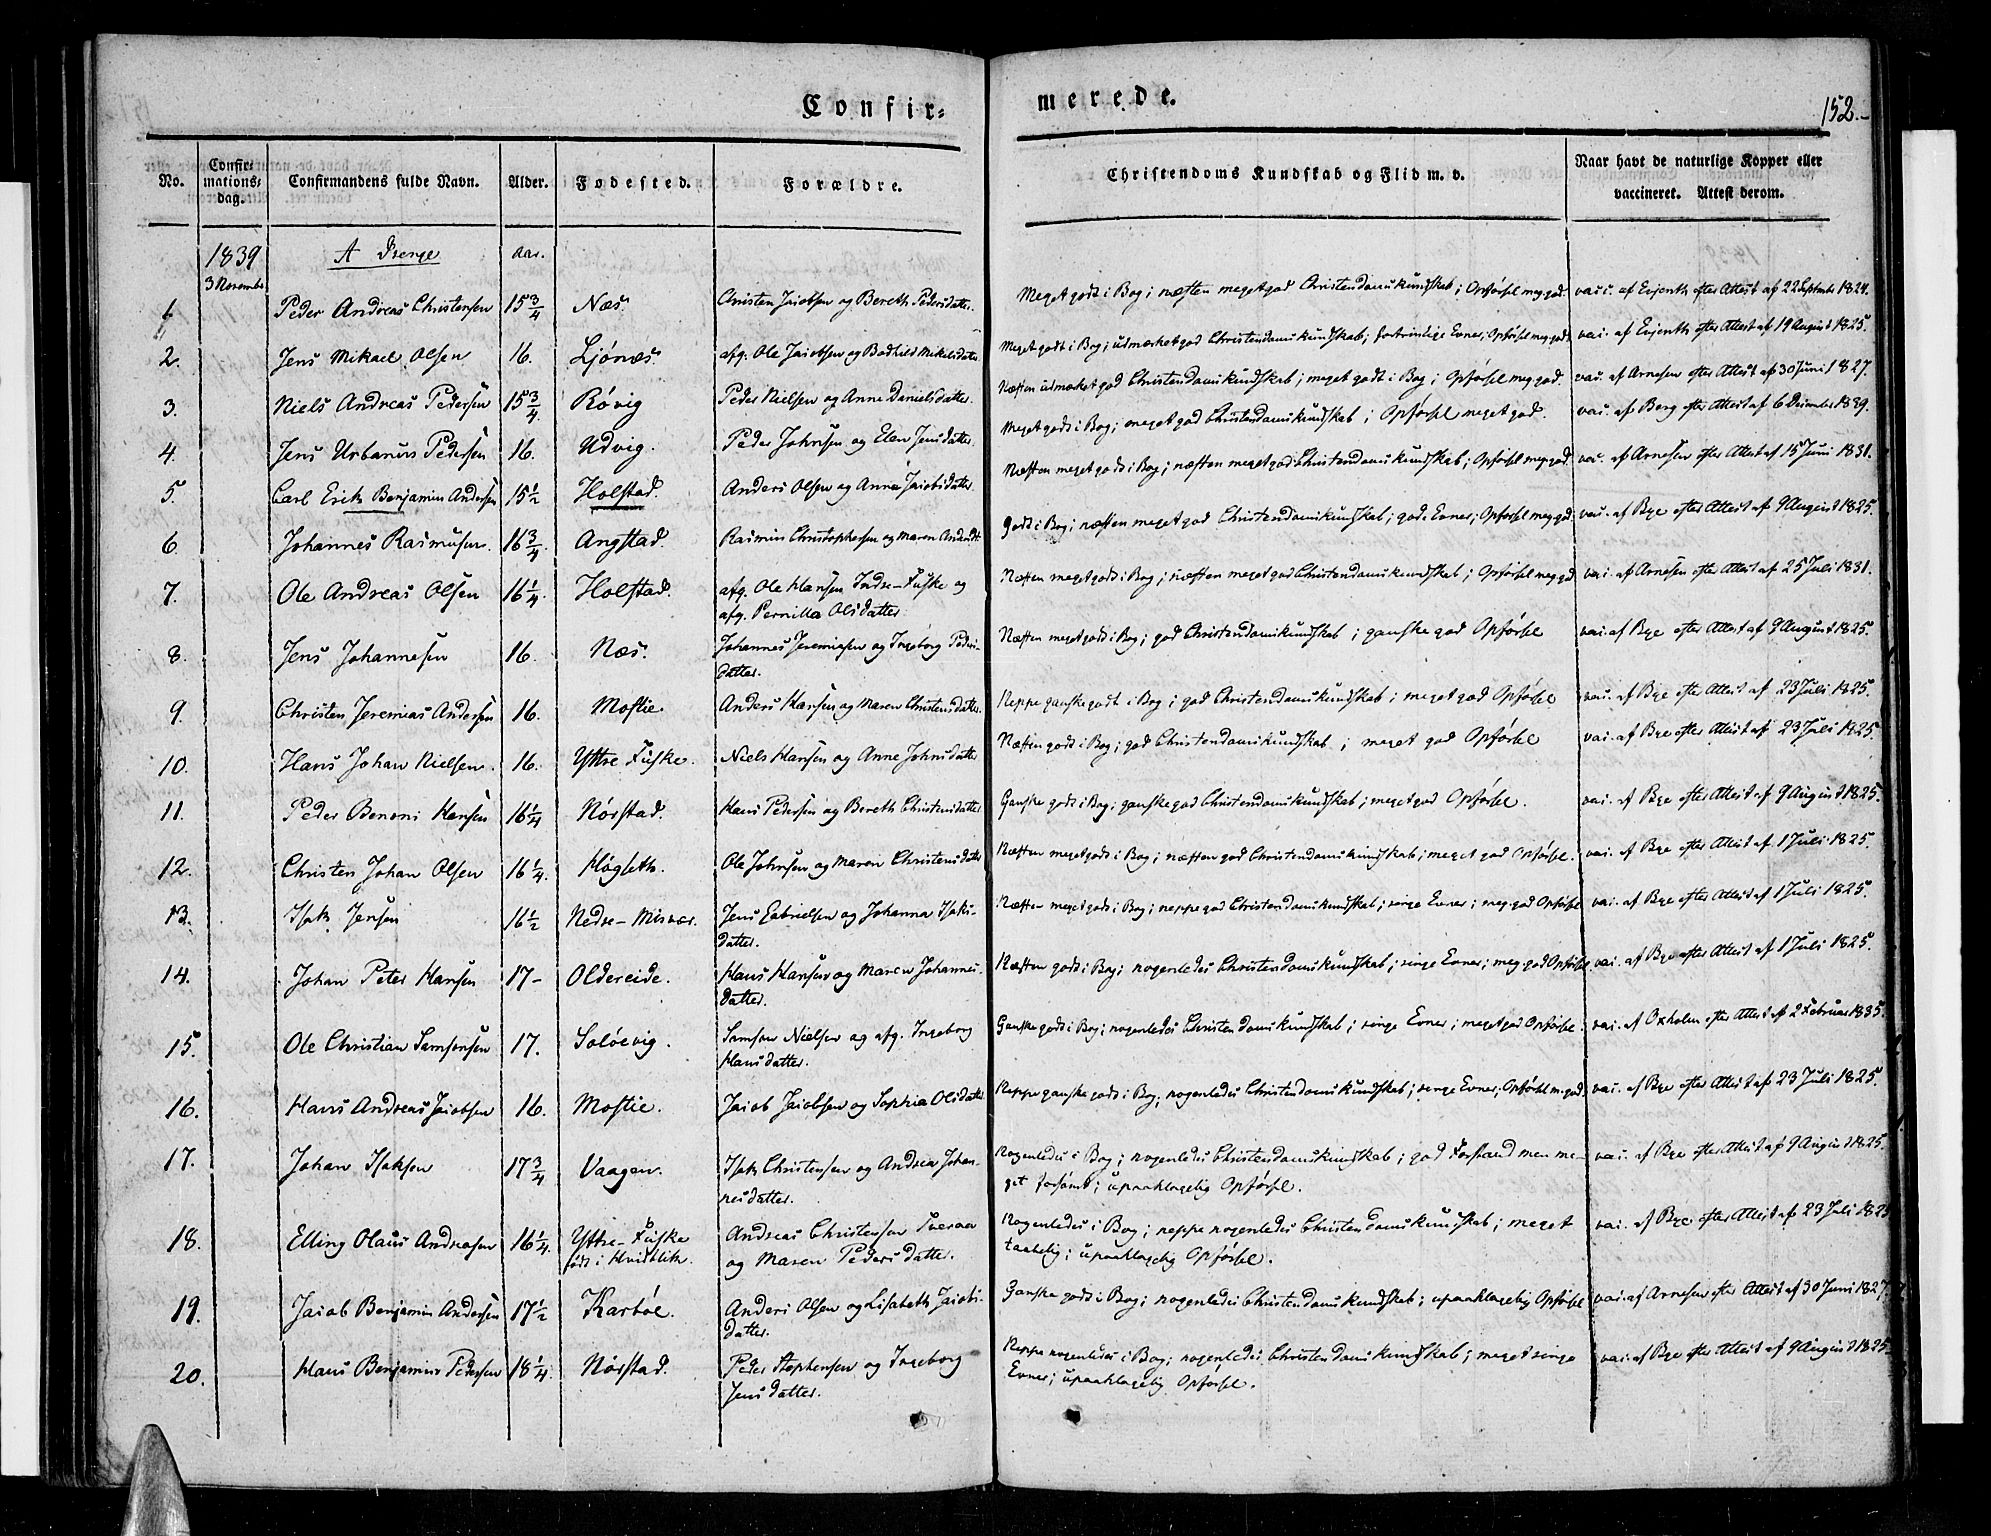 Confir=
merede.
152.
No.
Confir=
mations=
dag.
Confirmandens fulde Navn.
Alder.
Fødested.
Forældre.
Christendoms Kundskab og Flid m. v.
Naar havt de naturlige Kopper eller
vaccineret. Attest derom.
1839 A Drenge aar.
3 November
1. Peder Andreas Christensen 15 3/4 Næs. Christen Jacobsen og Bereth Pedersdatter. Meget godt i Bog; næsten meget god Christendomskundskab; Opførsel meg. god. vacc. af Evjenth efter Attest af 22 September 1824.
2. Jens Mikael Olsen 16. Ljönæs. afg. Ole Jacobsen og Bodhild Mikelsdatter Meget godt i Bog; udmærket god Christendomskundskab; fortrinlige Evner; Opførsel meg. god. vac. af Evjenth efter Attest af 19 August 1825.
3. Niels Andreas Pedersen 15 3/4. Røvig Peder Nielsen og Anne Danielsdatter. Næsten udmærket god Christendomskundskab; meget godt i Bog; Opførsel meg. god. vac. af Arnesen efter Attest af 30 Juni 1827.
4. Jens Urbanus Pedersen 16. Udvig. Peder Johnsen og Elen Jensdatter. Meget godt i Bog; meget god Christendomskundskab; Opførsel meget god. vac. af Berg efter Attest af 6 December 1839.
5. Carl Erik Benjamin Andersen 15 1/2 Holstad. Anders Olsen og Anne Jacobsdatter. Næsten meget godt i Bog; næsten meget god Christendomskundskab; Opførsel meg. god. vac. af Arnesen efter Attest af 15 Juni 1831.
6. Johannes Rasmusen. 16 3/4. Angstad. Rasmus Christophersen og Maren Andersdt. Godt i Bog; næsten meget god Christendomskundskab; gode Evner; Opførsel meg. god. vac. af Bye efter Attest af 9 August 1825.
7. Ole Andreas Olsen 16 1/4. Holstad. afg. Ole Hansen Indre-Fuske og
afg. Pernilla Olsdatter. Næsten meget godt i Bog; næsten meget god Christendomskundskab; Opførsel meg. god. vac. af Arnesen efter Attest af 25 Juli 1831.
8. Jens Johannesen 16. Næs. Johannes Jeremiasen og Ingeborg Peders-
datter. Næsten meget godt i Bog; god Christendomskundskab; ganske god Opførsel vac. af Bye efter Attest af 9 August 1825.
9. Christen Jeremias Andersen 16. Mostie. Anders Hansen og Maren Christensdatter. Neppe ganske godt i Bog; god Christendomskundskab; meget god Opførsel vac. af Bye efter Attest af 23 Juli 1825.
10. Hans Johan Nielsen. 16. Yttre Fuske. Niels Hansen og Anne Johnsdatter Næsten godt i Bog; god Christendomskundskab; meget god Opførsel vac. af Bye efter Attest af 23 Juli 1825.
11. Peder Benoni Hansen 16 1/4 Nörstad. Hans Pedersen og Bereth Christensdatter Ganske godt i Bog; ganske god Christendomskundskab; meget god Opførsel. vac. af Bye efter Attest af 9 August 1825.
12. Christen Johan Olsen 16 1/4. Høgleth. Ole Johnsen og Maren Christensdatter Næsten meget godt i Bog; næsten god Christendomskundskab; meget god Opførsel. vac. af Bye efter Attest af 1 Juli 1825.
13. Isak Jensen 16 1/2 Nedre-Misvær. Jens Gabrielsen og Johanna Isaks-
datter. Næsten meget godt i Bog; neppe god Christendomskundskab; ringe Evner; meg. god Opførsel vac. af Bye efter Attest af 1 Juli 1825.
14. Johan Peter Hansen 17- Oldereide. Hans Hansen og Maren Johannes-
datter. Næsten godt i Bog; nogenledes Christendomskundskab; ringe Evner; meg. god Opførsel vac. af Bye efter Attest af 1 Juli 1825.
15. Ole Christian Samsonsen 17. Solöevig. Samson Nielsen og afg. Ingeborg
Hansdatter. Ganske godt i Bog; nogenledes Christendomskundskab; ringe Evner; meget god Opførsel. vac. af Oxholm efter Attest af 2 Februar 1835.
16. Hans Andreas Jacobsen 16. Mostie. Jacob Jacobsen og Sophia Olsdatter Neppe ganske godt i Bog; nogenledes Christendomskundskab; ringe Evner; Opførsel m. god. vac. af Bye efter Attest af 23 Juli 1825.
17. Johan Isaksen 17 3/4 Vaagan. Isak Christensen og Andrea Johan-
nesdatter. Nogenledes i Bog; nogenledes Christendomskundskab; god Forstand men me-
get forsömt; upaaklagelig Opførsel. vac. af Bye efter Attest af 9 August 1825.
18. Elling Olaus Andreasen 16 1/4. Yttre-Fuske
født i Hvidblik. Andreas Christensen Tveraa
og Maren Pedersdatter. Nogenledes i Bog; neppe nogenledes Christendomskundskab; meget
taabelig; upaaklagelig Opførsel. vac. af Bye efter Attest af 23 Juli 1825
19. Jacob Benjamin Andersen 17 1/2 Karböl. Anders Olsen og Lisabeth Jacobs-
datter. Ganske godt i Bog; nogenledes Christendomskundskab; upaaklagelig Opførsel vac. af Arnesen efter Attest af 30 Juni 1827.
20. Hans Benjamin Pedersen 18 1/4. Nörstad. Peder Stephensen og Ingeborg
Jensdatter. Neppe nogenledes i Bog; nogenledes Christendomskundskab; meget ringe
Evner; upaaklagelig Opførsel. vac. af Bye efter Attest af 9 August 1825